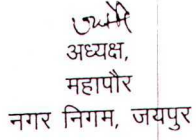 अध्यक्ष,
महापौर
नगर निगम, जयपुर